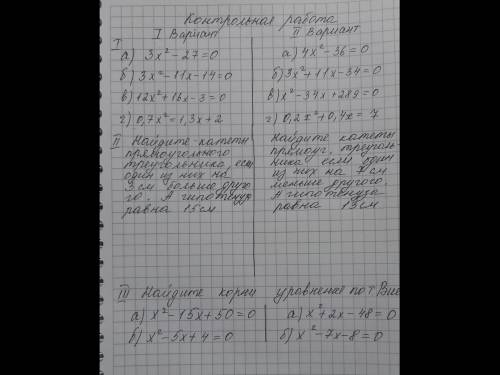 Контрольная работа
I Вариант
I
а) 3x² - 27 = 0
б) 3x² - 11x - 14 = 0
в) 12x² + 16x - 3 = 0
г) 0,7x² = 1,3x + 2
II Найдите катеты
прямоугольного
треугольника, если
один из них на
3 см больше друго
го. А гипотенуза
равна 15 см
II Вариант
а) 4x² - 36 = 0
б) 3x² + 11x - 34 = 0
в) x² - 34x + 289 = 0
г) 0,2x² + 0,4x = 7
Найдите катеты
прямоуг. треуголь-
ника если один
из них на 7 см
меньше другого.
А гипотенуза
равна 13 см
III Найдите корни уравнение по т Вие
а) x² - 15x + 50 = 0
в) x² - 5x + 4 = 0
а) x² + 2x - 48 = 0
б) x² - 7x - 8 = 0